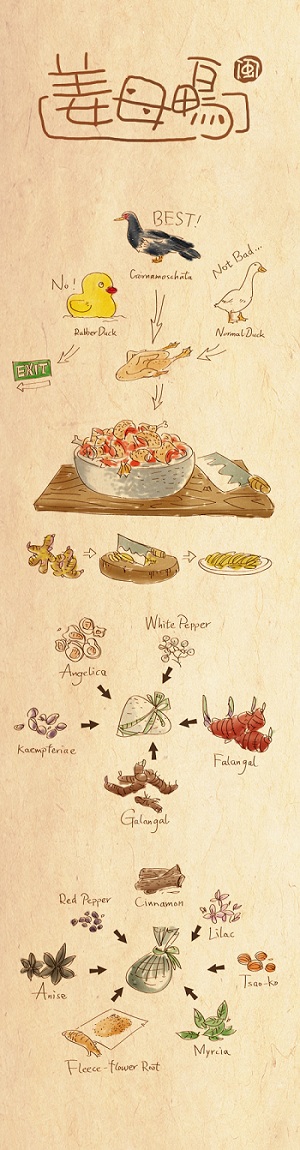 姜母鴨
闽
BEST!
Cairnamoschata
No!
Not Bad...
Rubber Duck
Normal Duck
EXIT
White Pepper
Angelica
Kaempferiae
Falangal
Galangal
Cinnamon
Red Pepper
Lilac
Anise
Tsao-ko
Myrcia
Fleece-flower Root